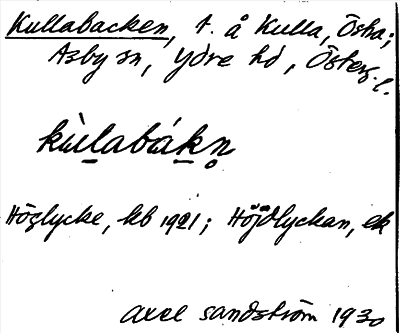 Kullabacken, t. å Kulla, Östra;
Asby sn, Ydre hd, Österg. l.
kùlabákn̥
Höglycke, kb 1921; Höjdlyckan, ek
Axel Sandström 1930